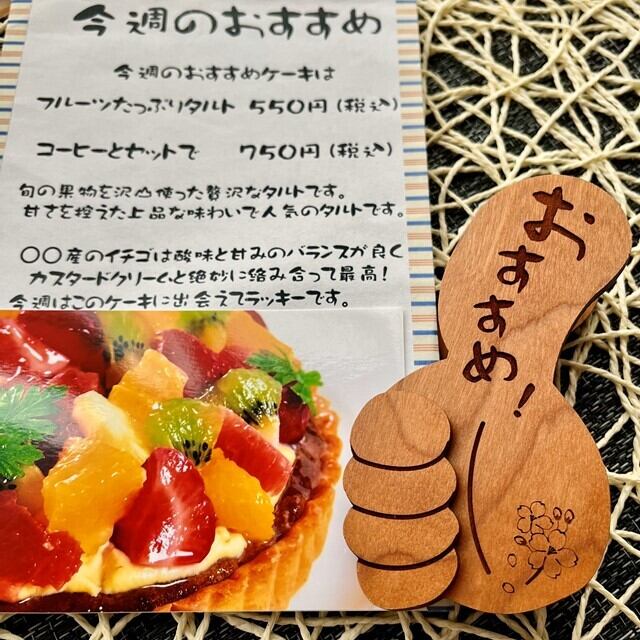 今週のおすすめ
今週のおすすめケーキは
フルーツたっぷりタルト 550円(税込)
コーヒーとセットで 750円(税込)
旬の果物を沢山使った贅沢なタルトです。
甘さを控えた上品な味わいで人気のタルトです。
〇〇産のイチゴは酸味と甘みのバランスが良く
カスタードクリームと絶妙に絡み合って最高!
今週はこのケーキに出会えてラッキーです。
おすすめ!